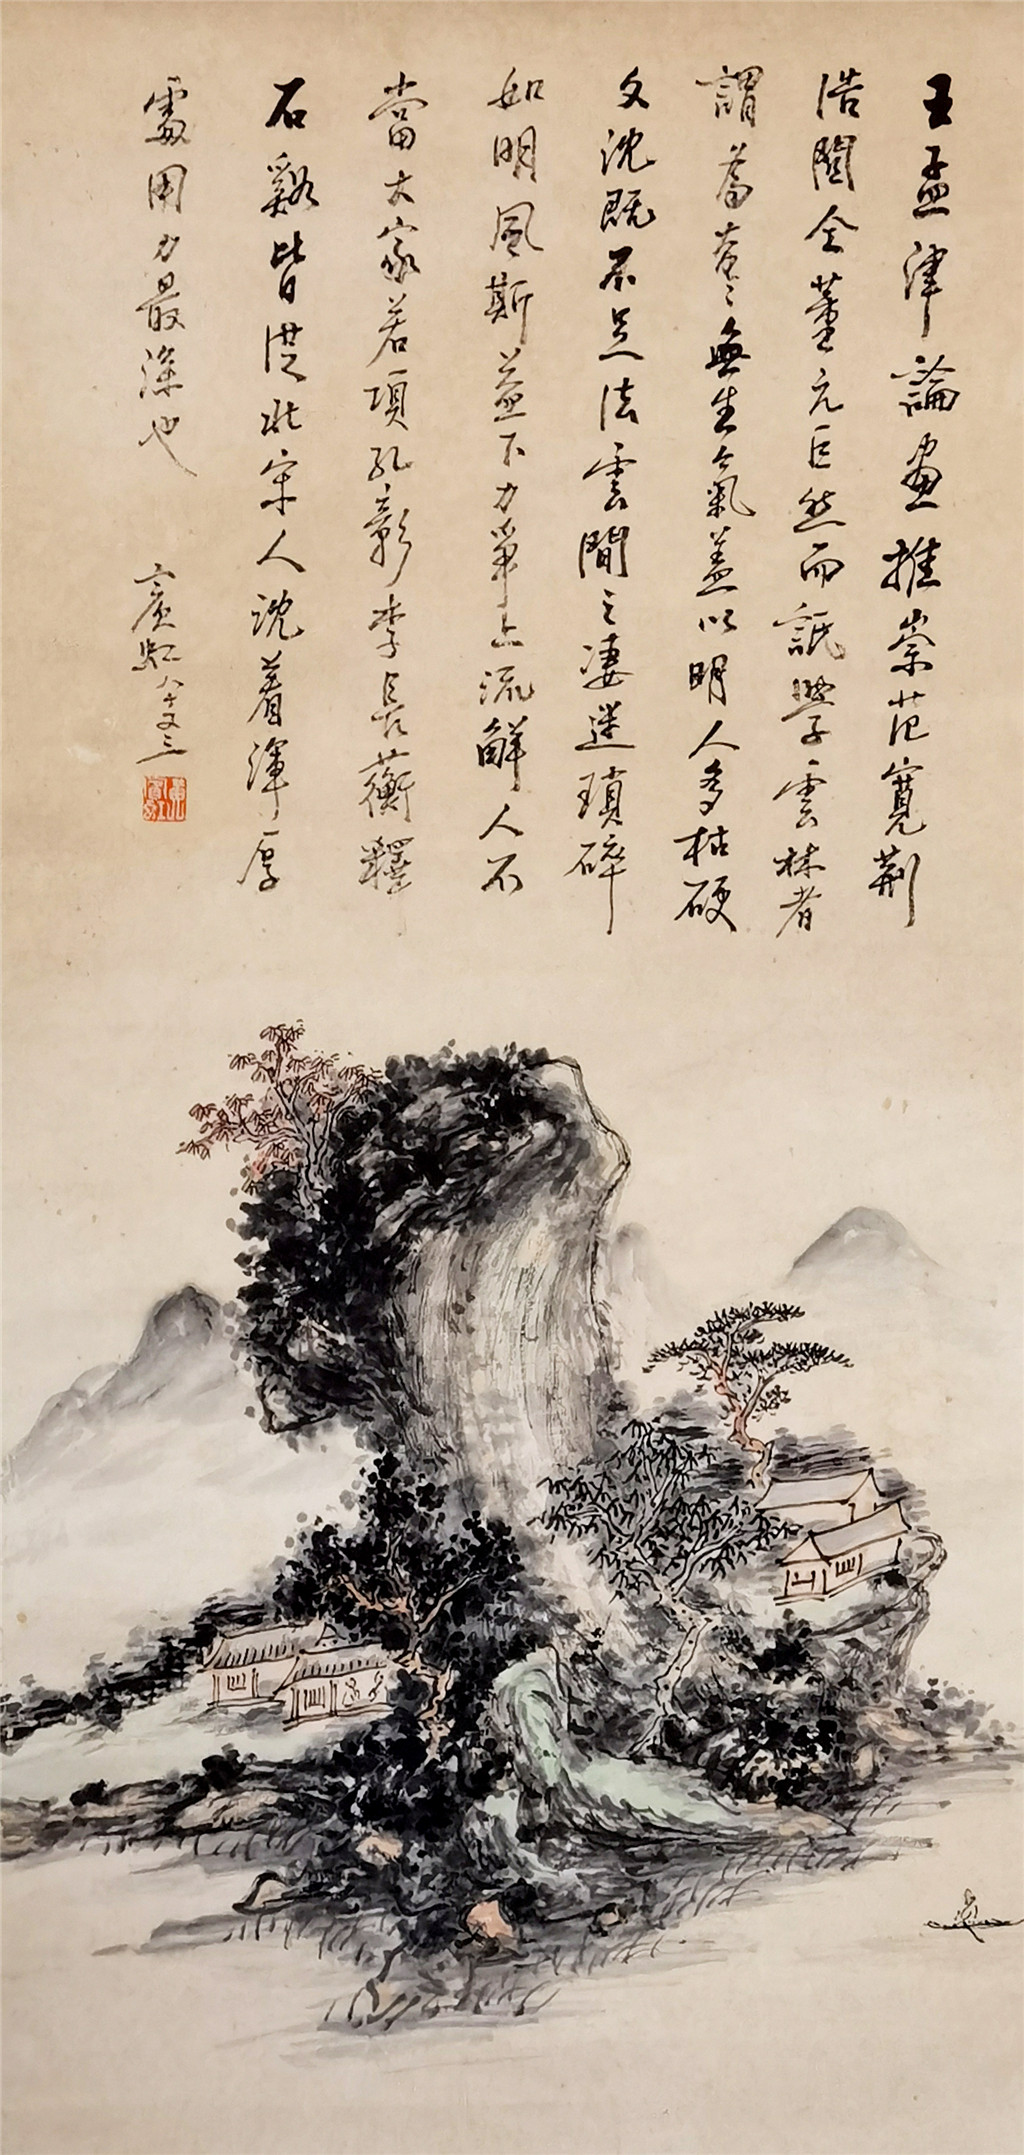 王孟津論畫推崇范寬荊
浩關仝董元巨然而詆學雲林者
謂為奄〻無生氣蓋以明人多枯硬
文沈既不足法雲間之凄迷瑣碎
如明風斯益下力爭上流鮮人不
當大家若項孔彰李長蘅釋
石谿皆從北宋人沈着渾厚
處用力最深也
賓虹八十又三